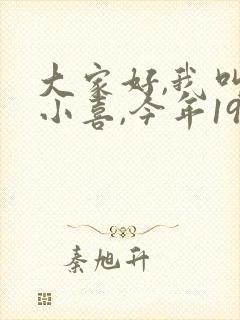 大家好,我叫
小喜,今年19
秦旭升